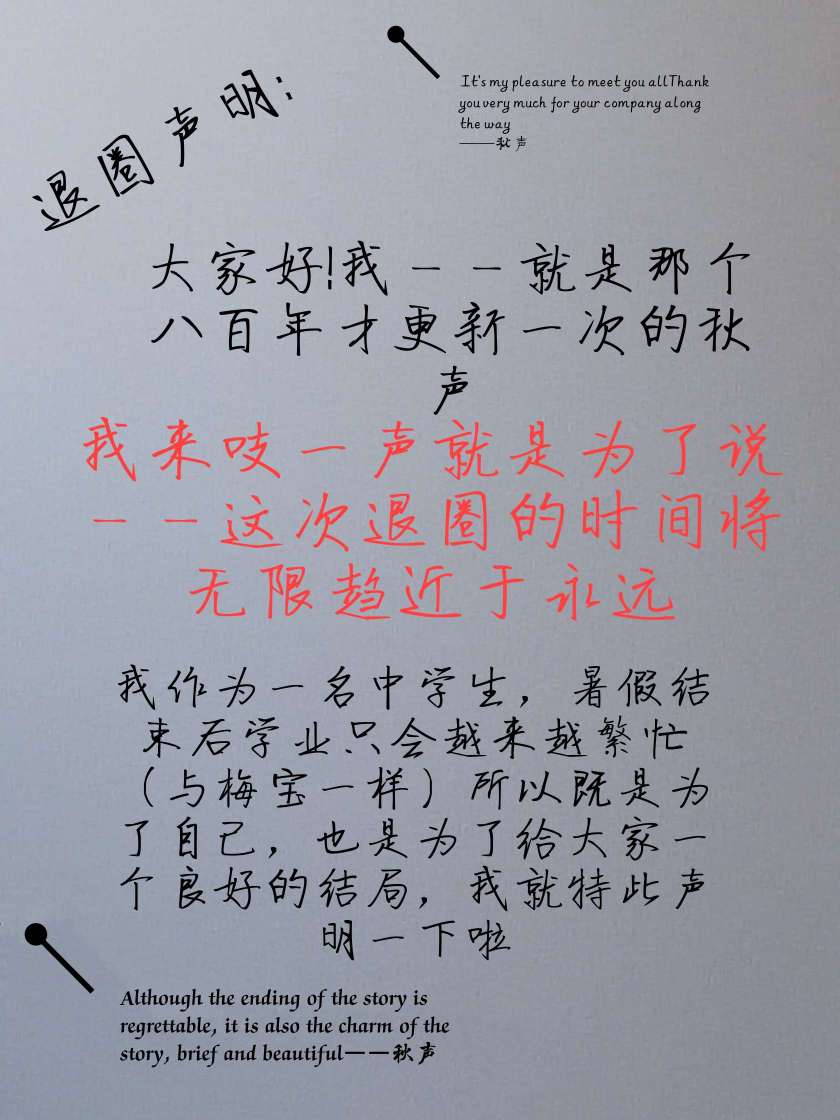 退圈声明:
It's my pleasure to meet you allThank
you very much for your company along
the way
——秋声
大家好!我--就是那个
八百年才更新一次的秋
声
我来吱一声就是为了说
--这次退圈的时间将
无限趋近于永远
我作为一名中学生，暑假结
束后学业只会越来越繁忙
（与梅宝一样）所以既是为
了自己，也是为了给大家一
个良好的结局，我就特此声
明一下啦
Although the ending of the story is
regrettable, it is also the charm of the
story, brief and beautiful——秋声